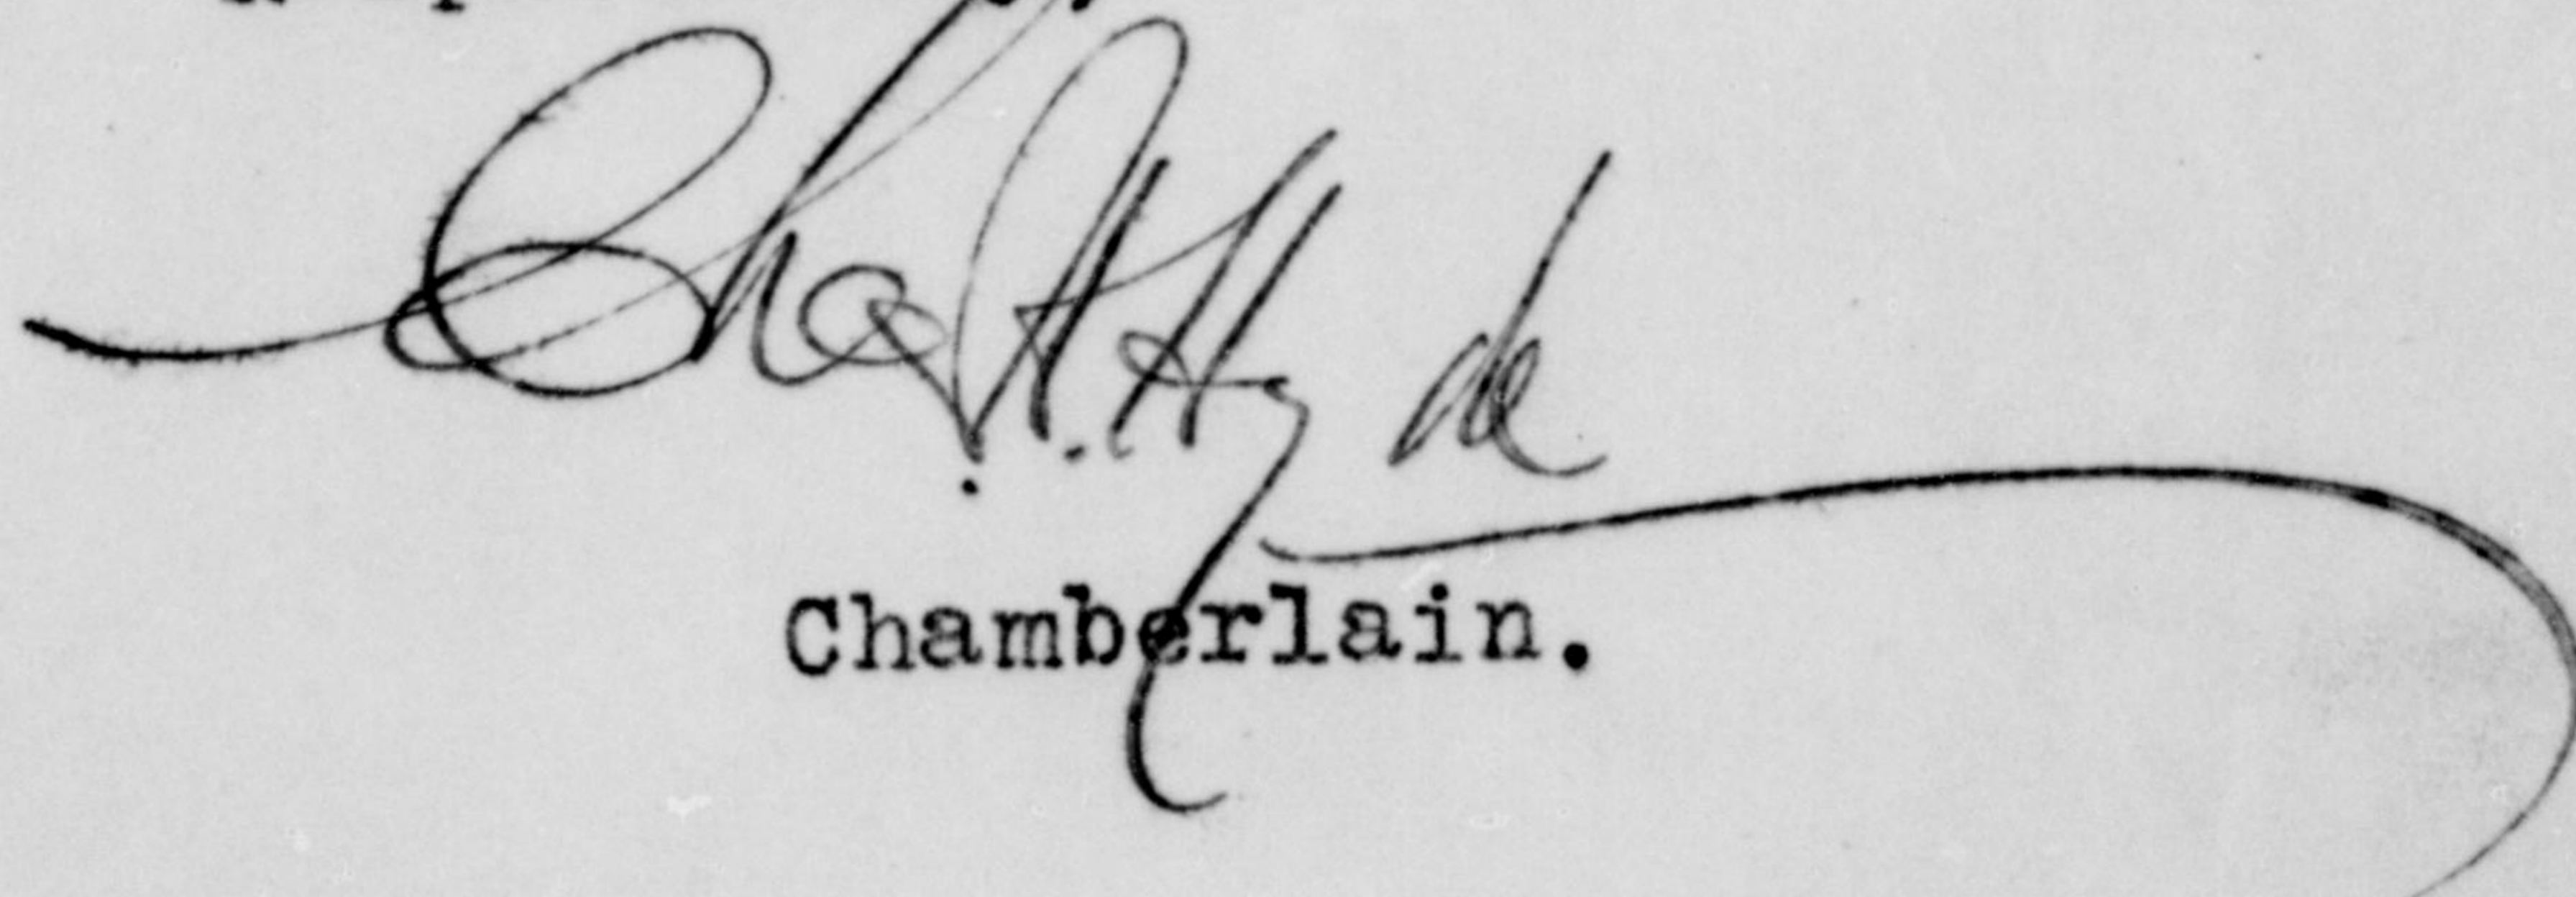 Chas. H. Hyde
Chamberlain.